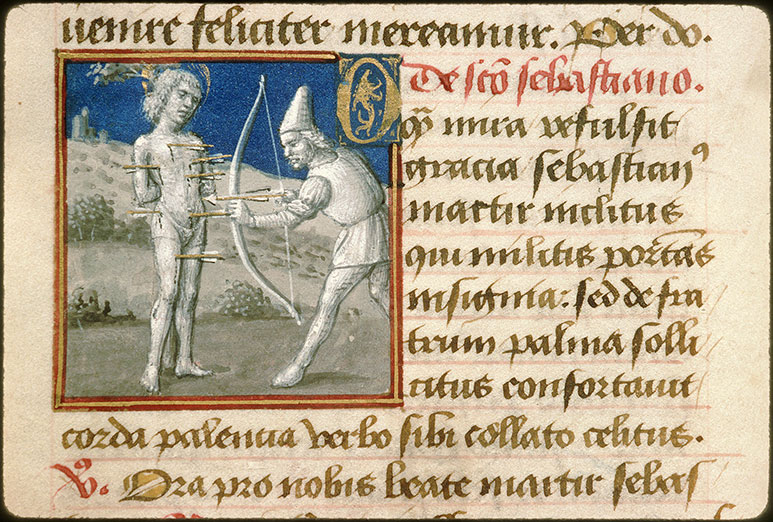 uenire feliciter mereamur. Per do.
De scō sebastiano.
O
qȝ mira refulsit
gracia sebastianꝰ
martir inclitus
qui militis portās
insignia: sed de fra
trum palma solli
citus confortauit
corda palentia verbo sibi collato celitus.
Ora pro nobis beate martir sebas